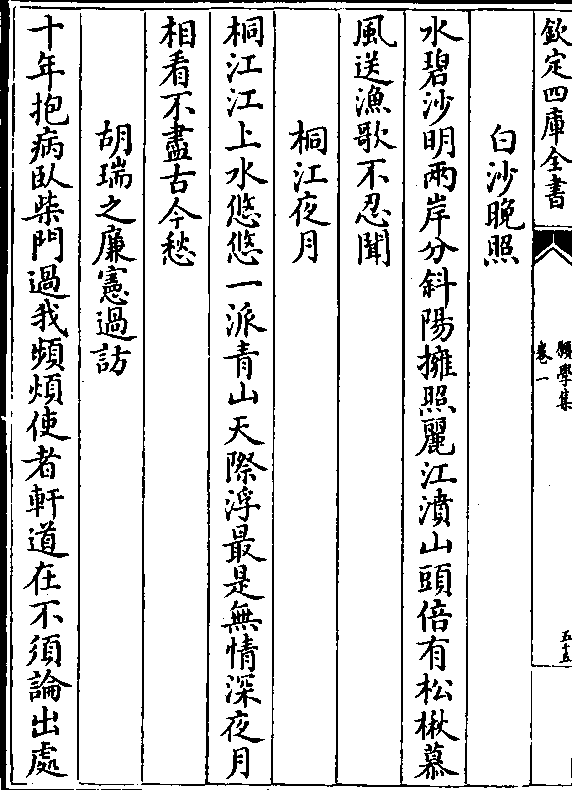 欽定四庫全書
願學集
卷一
五十五
白沙晚照
水碧沙明兩岸分斜陽擁照麗江濆山頭倍有松楸慕
風送漁歌不忍聞
桐江夜月
桐江江上水悠悠一派青山天際浮最是無情深夜月
相看不盡古今愁
胡瑞之廉憲過訪
十年抱病臥柴門過我頻煩使者軒道在不須論出處